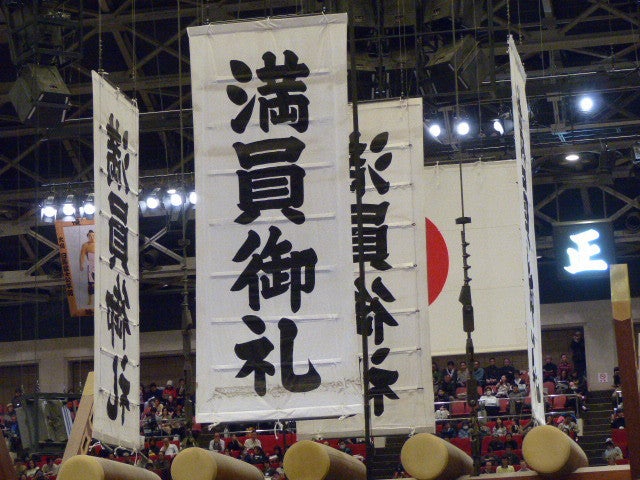 満員御礼
満員御礼
満員御礼
正